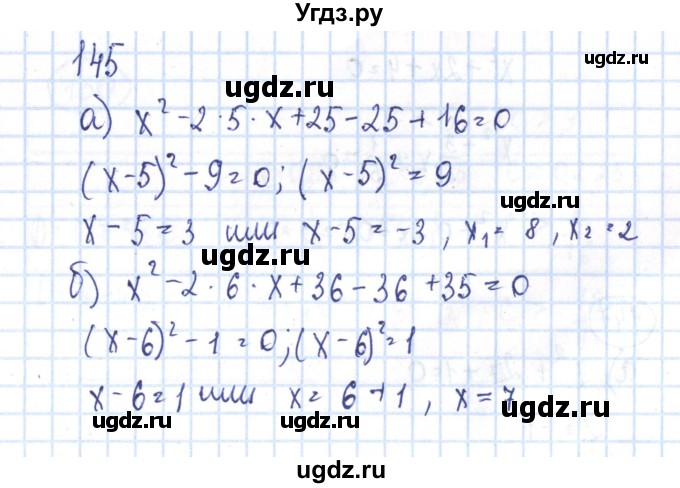 Угдз.ру
145
ugdz.ru ugdz.ru
а) x² - 2 · 5 · x + 25 - 25 + 16 = 0
(x - 5)² - 9 = 0; (x - 5)² = 9
ugdz.ru
x - 5 = 3 или x - 5 = -3, x₁ = 8, x₂ = 2
ugdz.ru
б) x² - 2 · 6 · x + 36 - 36 + 35 = 0
ugdz.ru ugdz.ru
(x - 6)² - 1 = 0; (x - 6)² = 1
x - 6 = 1 или x = 6 + 1, x = 7
ugdz.ru
ugdz.ru ugdz.ru
ugdz.ru